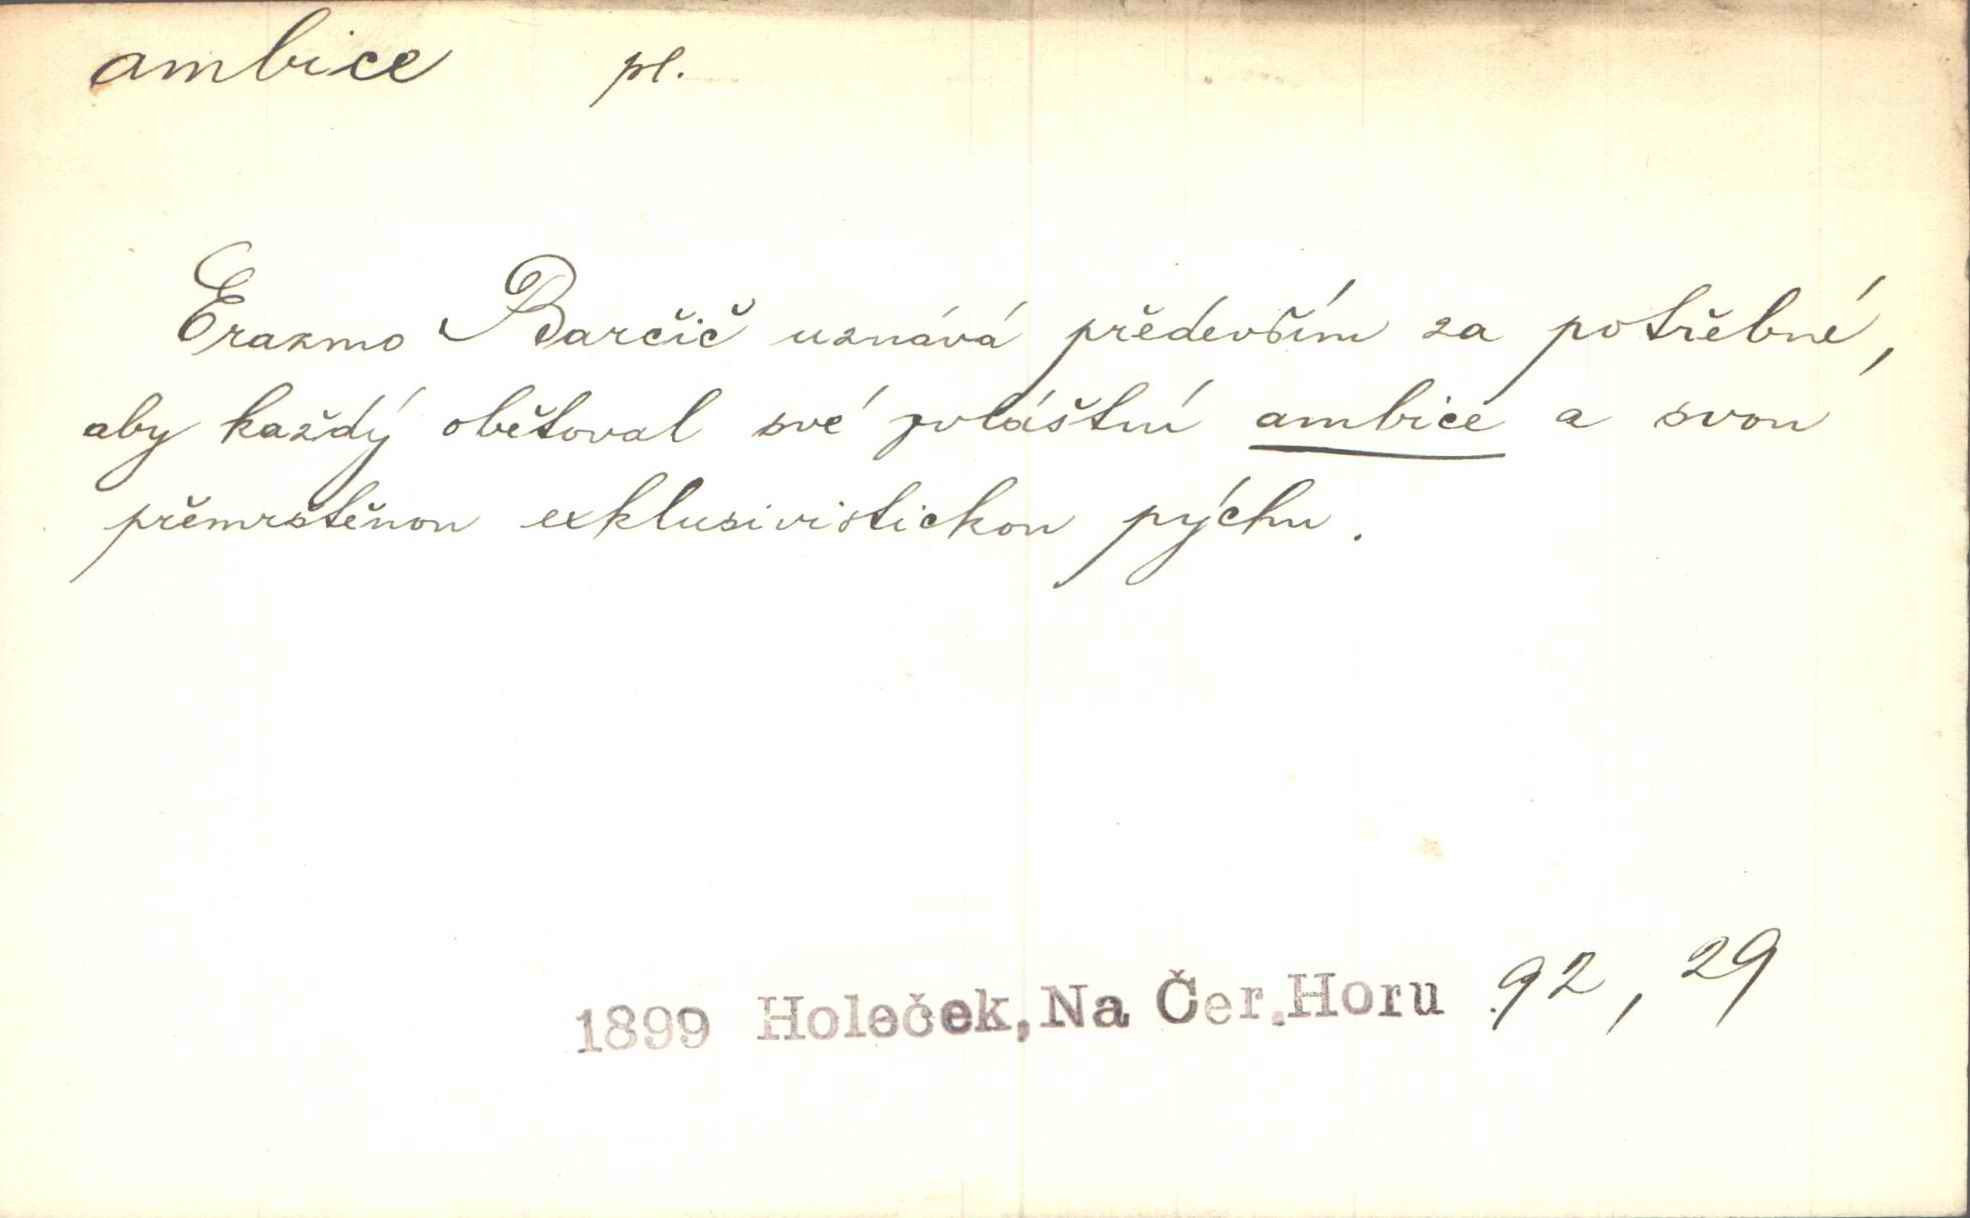 ambice pl.
Erazmo Barčič uznává především za potřebné,
aby každý obětoval své zvláštní ambice a svou
přemrštěnou exklusivistickou pýchu.
1899 Holeček, Na Čer. Horu 92, 29